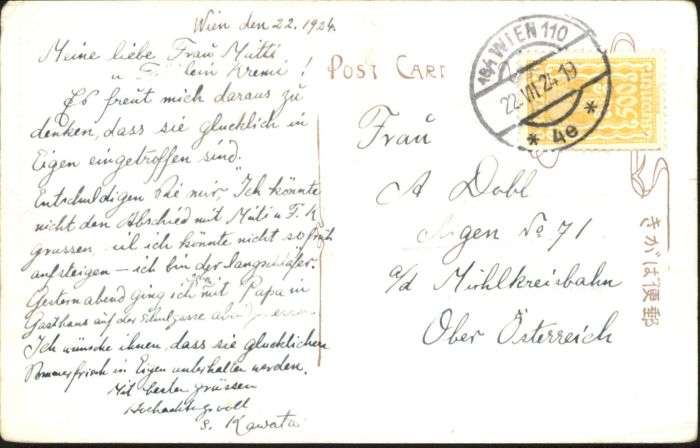 Wien den 22. 1924.
Meine liebe Frau Mutti
u F lein Kremi !
Es freut mich daraus zu
denken, dass sie glucklich in
Eigen eingetroffen sind.
Entschuldigen Sie mir, Ich könnte
nicht den Abschied mit Muti u F. K
grussen, uil ich könnte nicht so früh
aufsteigen – ich bin der Langschläfer.
Gestern abend ging ich mit Papa in
Gasthaus auf der Schulgasse
Ich wünsche ihnen, dass sie glucklichen
Sommerfrisch in Eigen unterhalten werden.
Mit besten grüssen
Hochachtugsvoll
S. Kawata
POST CART
184 WIEN 110
22.VII.24-19
* 4e *
500
Frau
A Dobl
Aigen No 71
a/d Mühlkreisbahn
Ober Österreich
きがは便郵